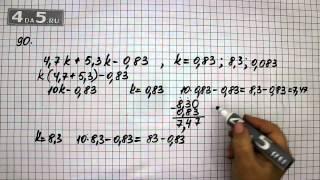 4ДА5.ru
90.
4,7k + 5,3k - 0,83 , k = 0,83 ; 8,3 ; 0,083
k(4,7+5,3) - 0,83
10k - 0,83 k = 0,83 10·0,83 - 0,83 = 8,3 - 0,83 = 7,47
- 8,30
0,83
7,47
k = 8,3 10·8,3 - 0,83 = 83 - 0,83